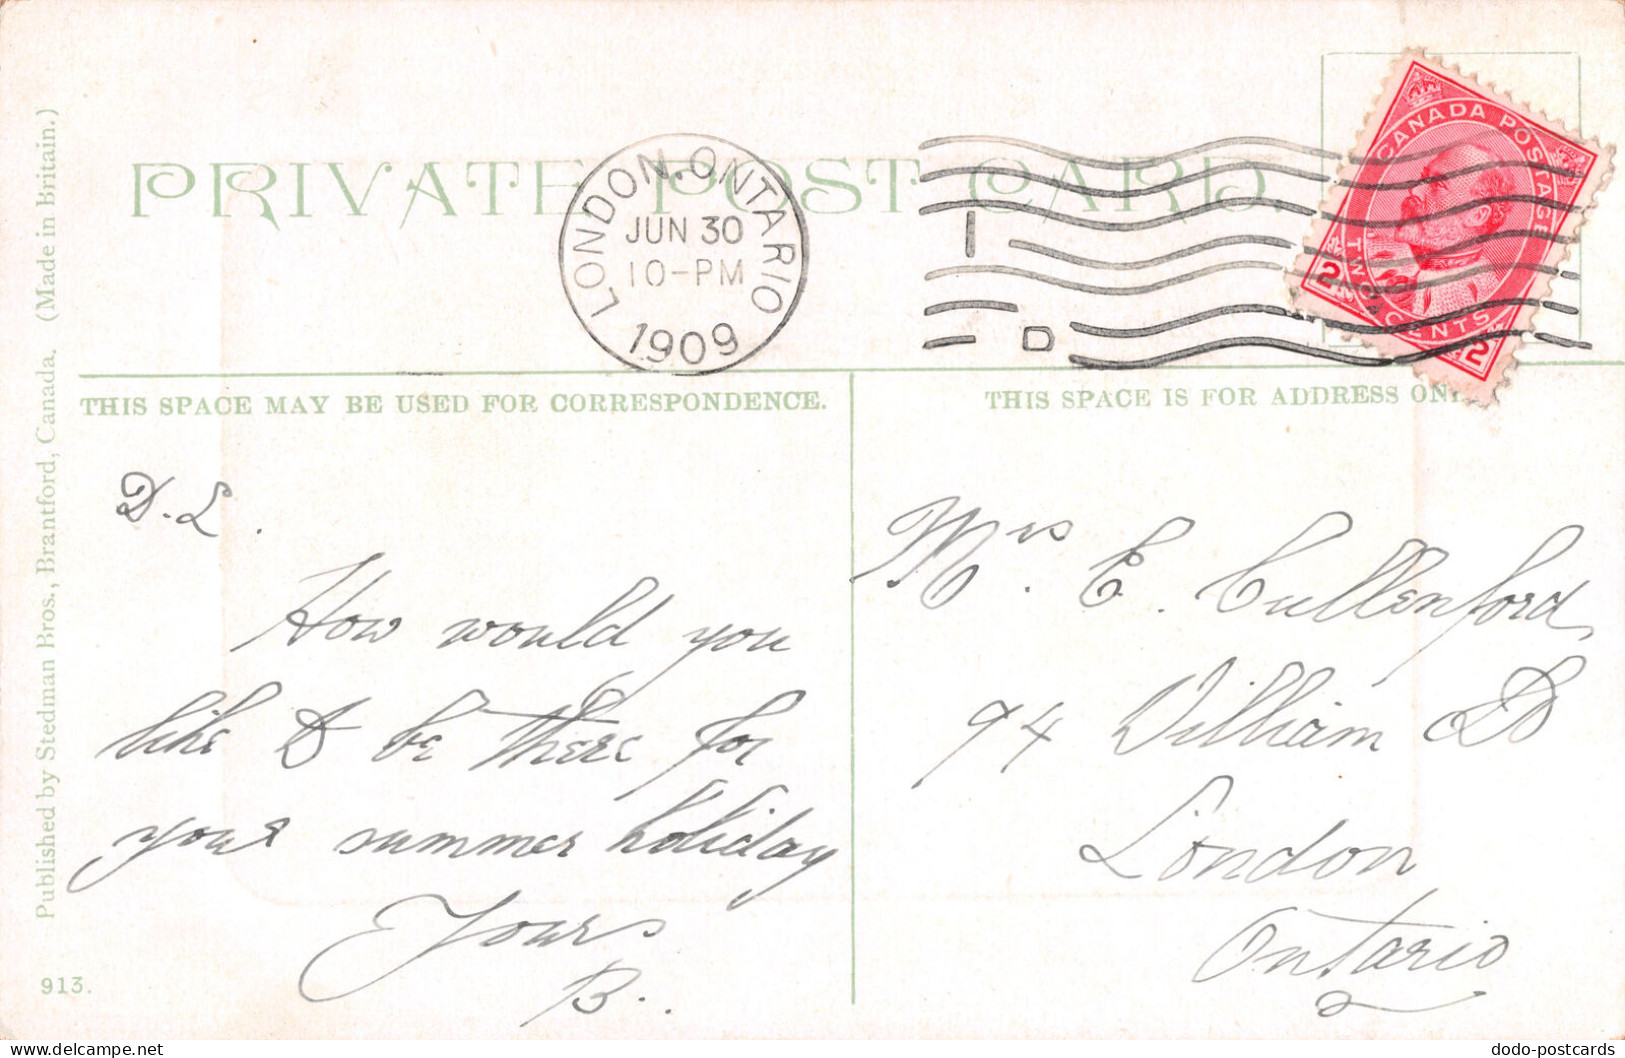 PRIVATE POST CARD.
LONDON. ONTARIO
JUN 30
10-PM
1909
I
D
CANADA POSTAGE
2 2
TWO CENTS
THIS SPACE MAY BE USED FOR CORRESPONDENCE.
THIS SPACE IS FOR ADDRESS ON
D.L.
How would you
like to be there for
your summer holiday
Yours
B.
Mrs. E. Cullenford
94 William St
London
Ontario
Published by Stedman Bros., Brantford, Canada. (Made in Britain.)
913.
dodo-postcards